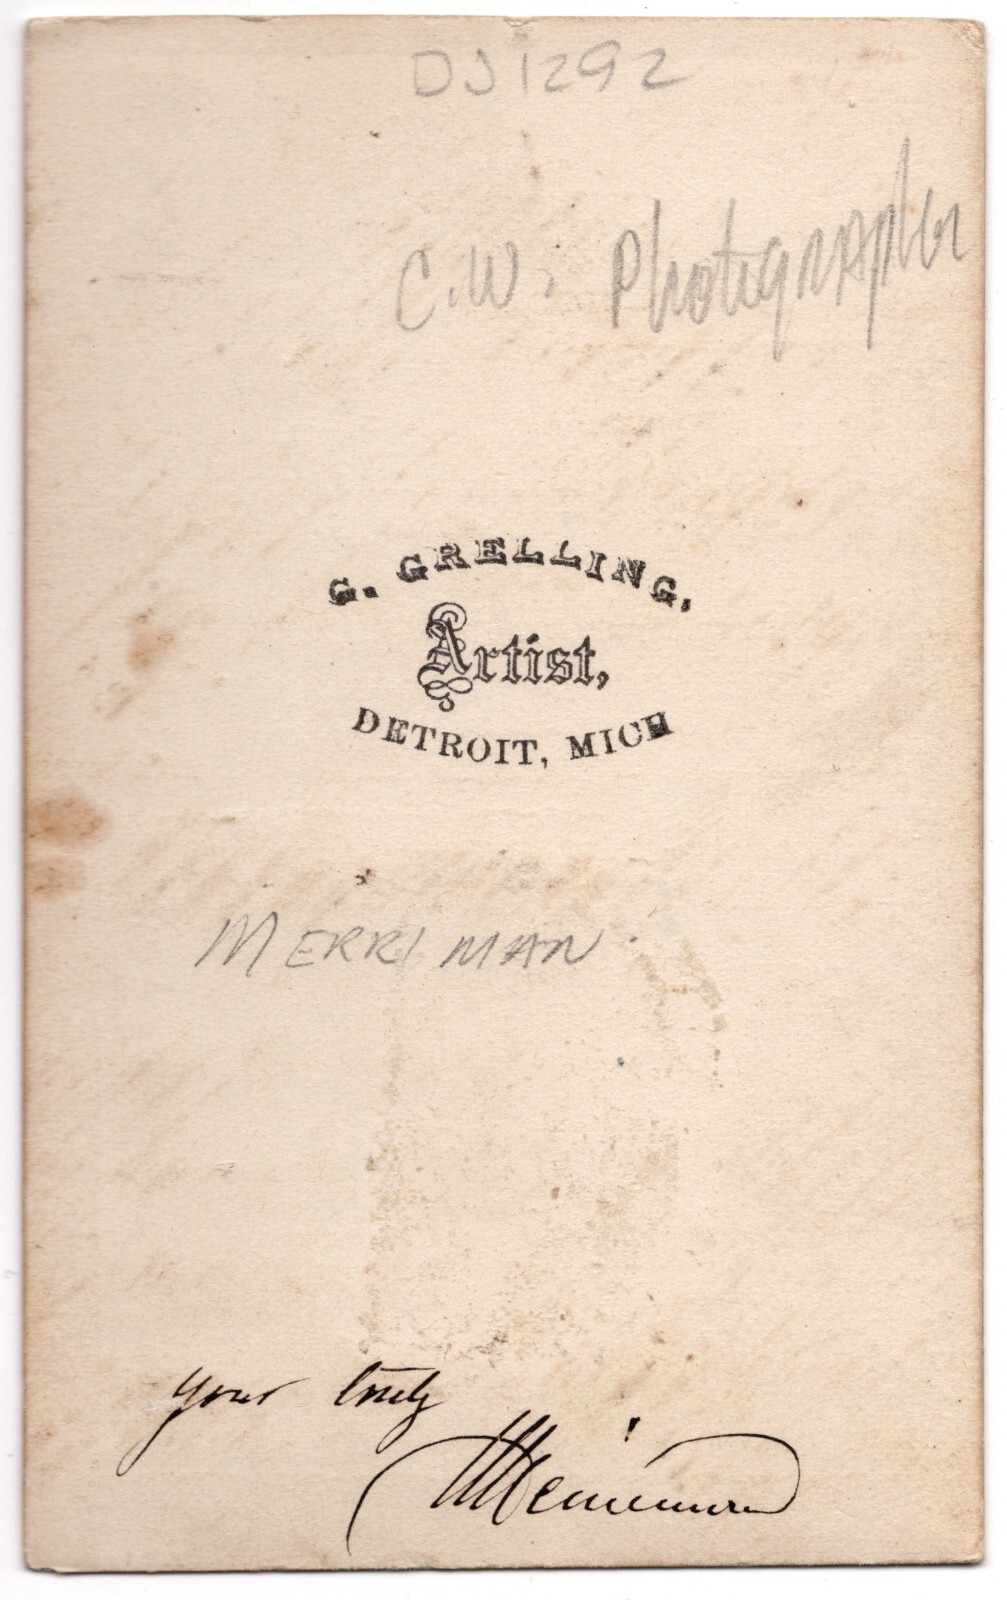 DJ1292
C.W. Photographer
G. GRELLING,
Artist,
DETROIT, MICH
MERRIMAN
your truly